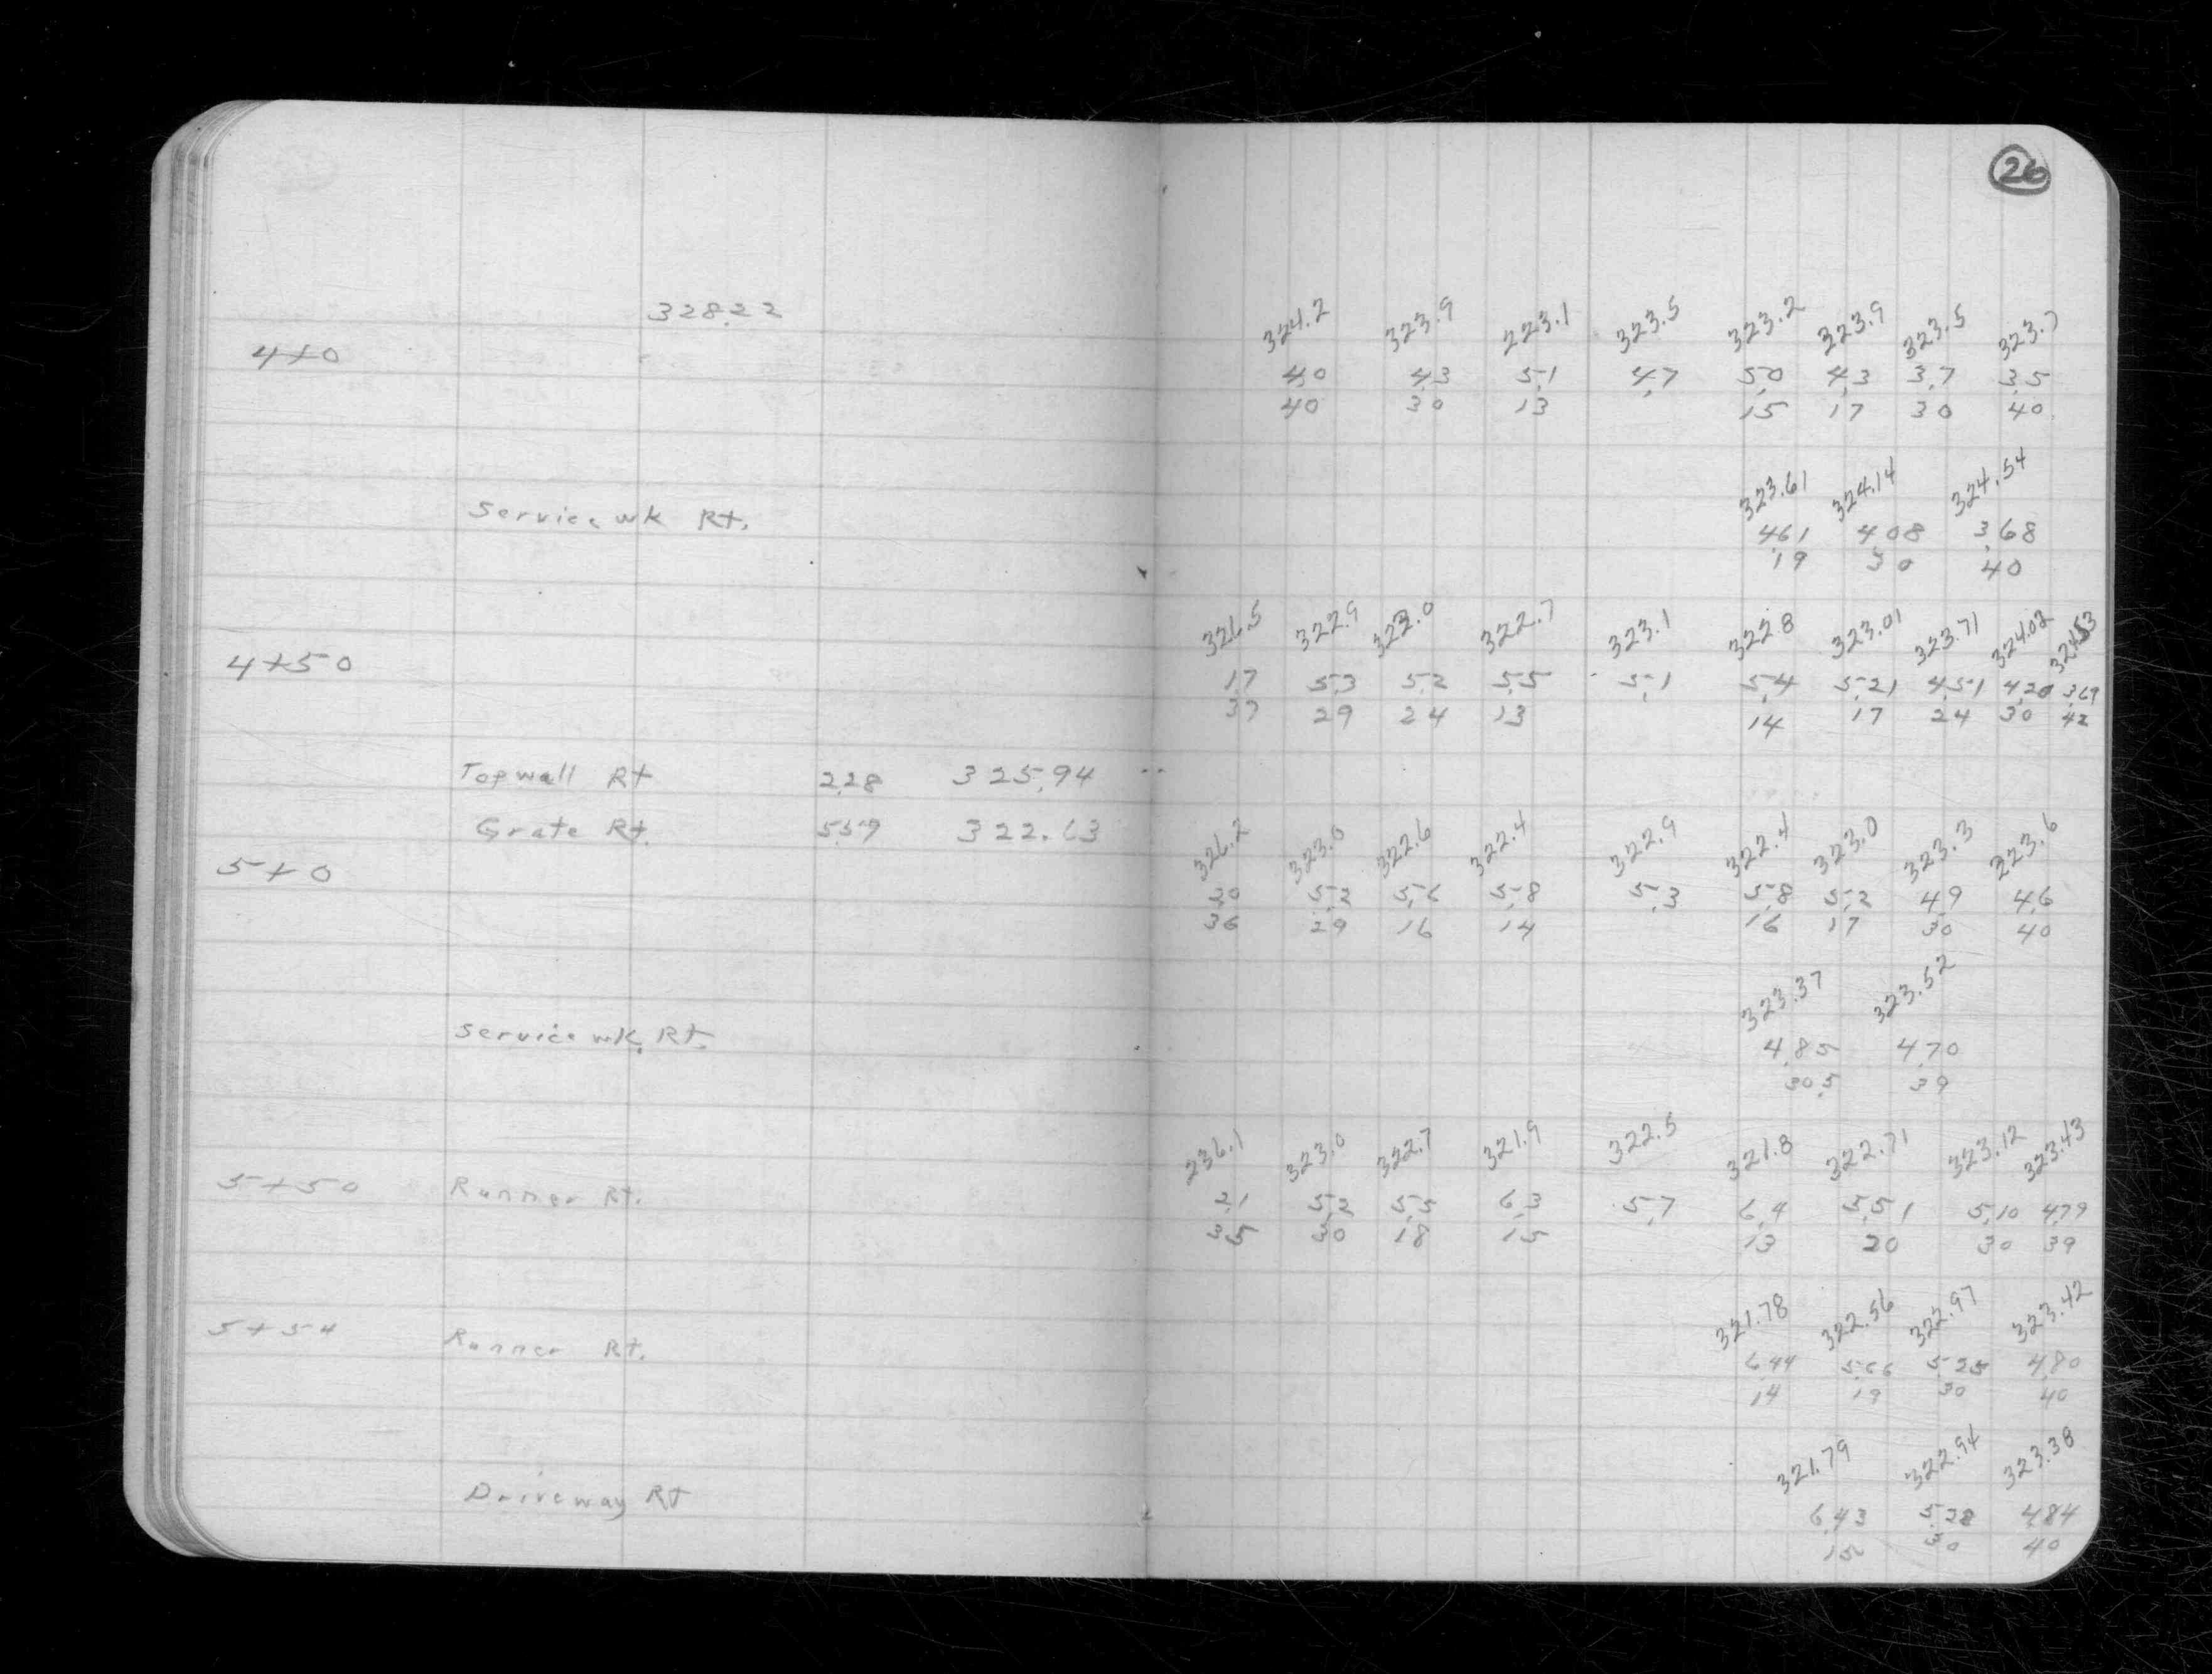 26
328.22
324.2 323.9 223.1 323.5 323.2 323.9 323.5 323.7
4+0 4.0 4.3 5.1 4.7 5.0 4.3 3.7 3.5
40 30 13 15 17 30 40
323.61 324.14 324.54
Service wk Rt. 4.61 4.08 3.68
19 30 40
326.5 322.9 323.0 322.7 323.1 322.8 323.01 323.71 324.02 324.53
4+50 1.7 5.3 5.2 5.5 5.1 5.4 5.21 4.51 4.20 3.69
37 29 24 13 14 17 24 30 42
Top wall Rt 2.28 325.94
Grate Rt. 5.59 322.63
326.2 323.0 322.6 322.4 322.9 322.4 323.0 323.3 323.6
5+0 2.0 5.2 5.6 5.8 5.3 5.8 5.2 4.9 4.6
36 29 16 14 16 17 30 40
323.37 323.52
Service wk. Rt. 4.85 4.70
30.5 39
236.1 323.0 322.7 321.9 322.5 321.8 322.71 323.12 323.43
5+50 Runner Rt. 2.1 5.2 5.5 6.3 5.7 6.4 5.51 5.10 4.79
35 30 18 15 13 20 30 39
321.78 322.56 322.97 323.42
5+54 Runner Rt. 6.44 5.66 5.25 4.80
14 19 30 40
321.79 322.94 323.38
Driveway Rt 6.43 5.28 4.84
15 30 40